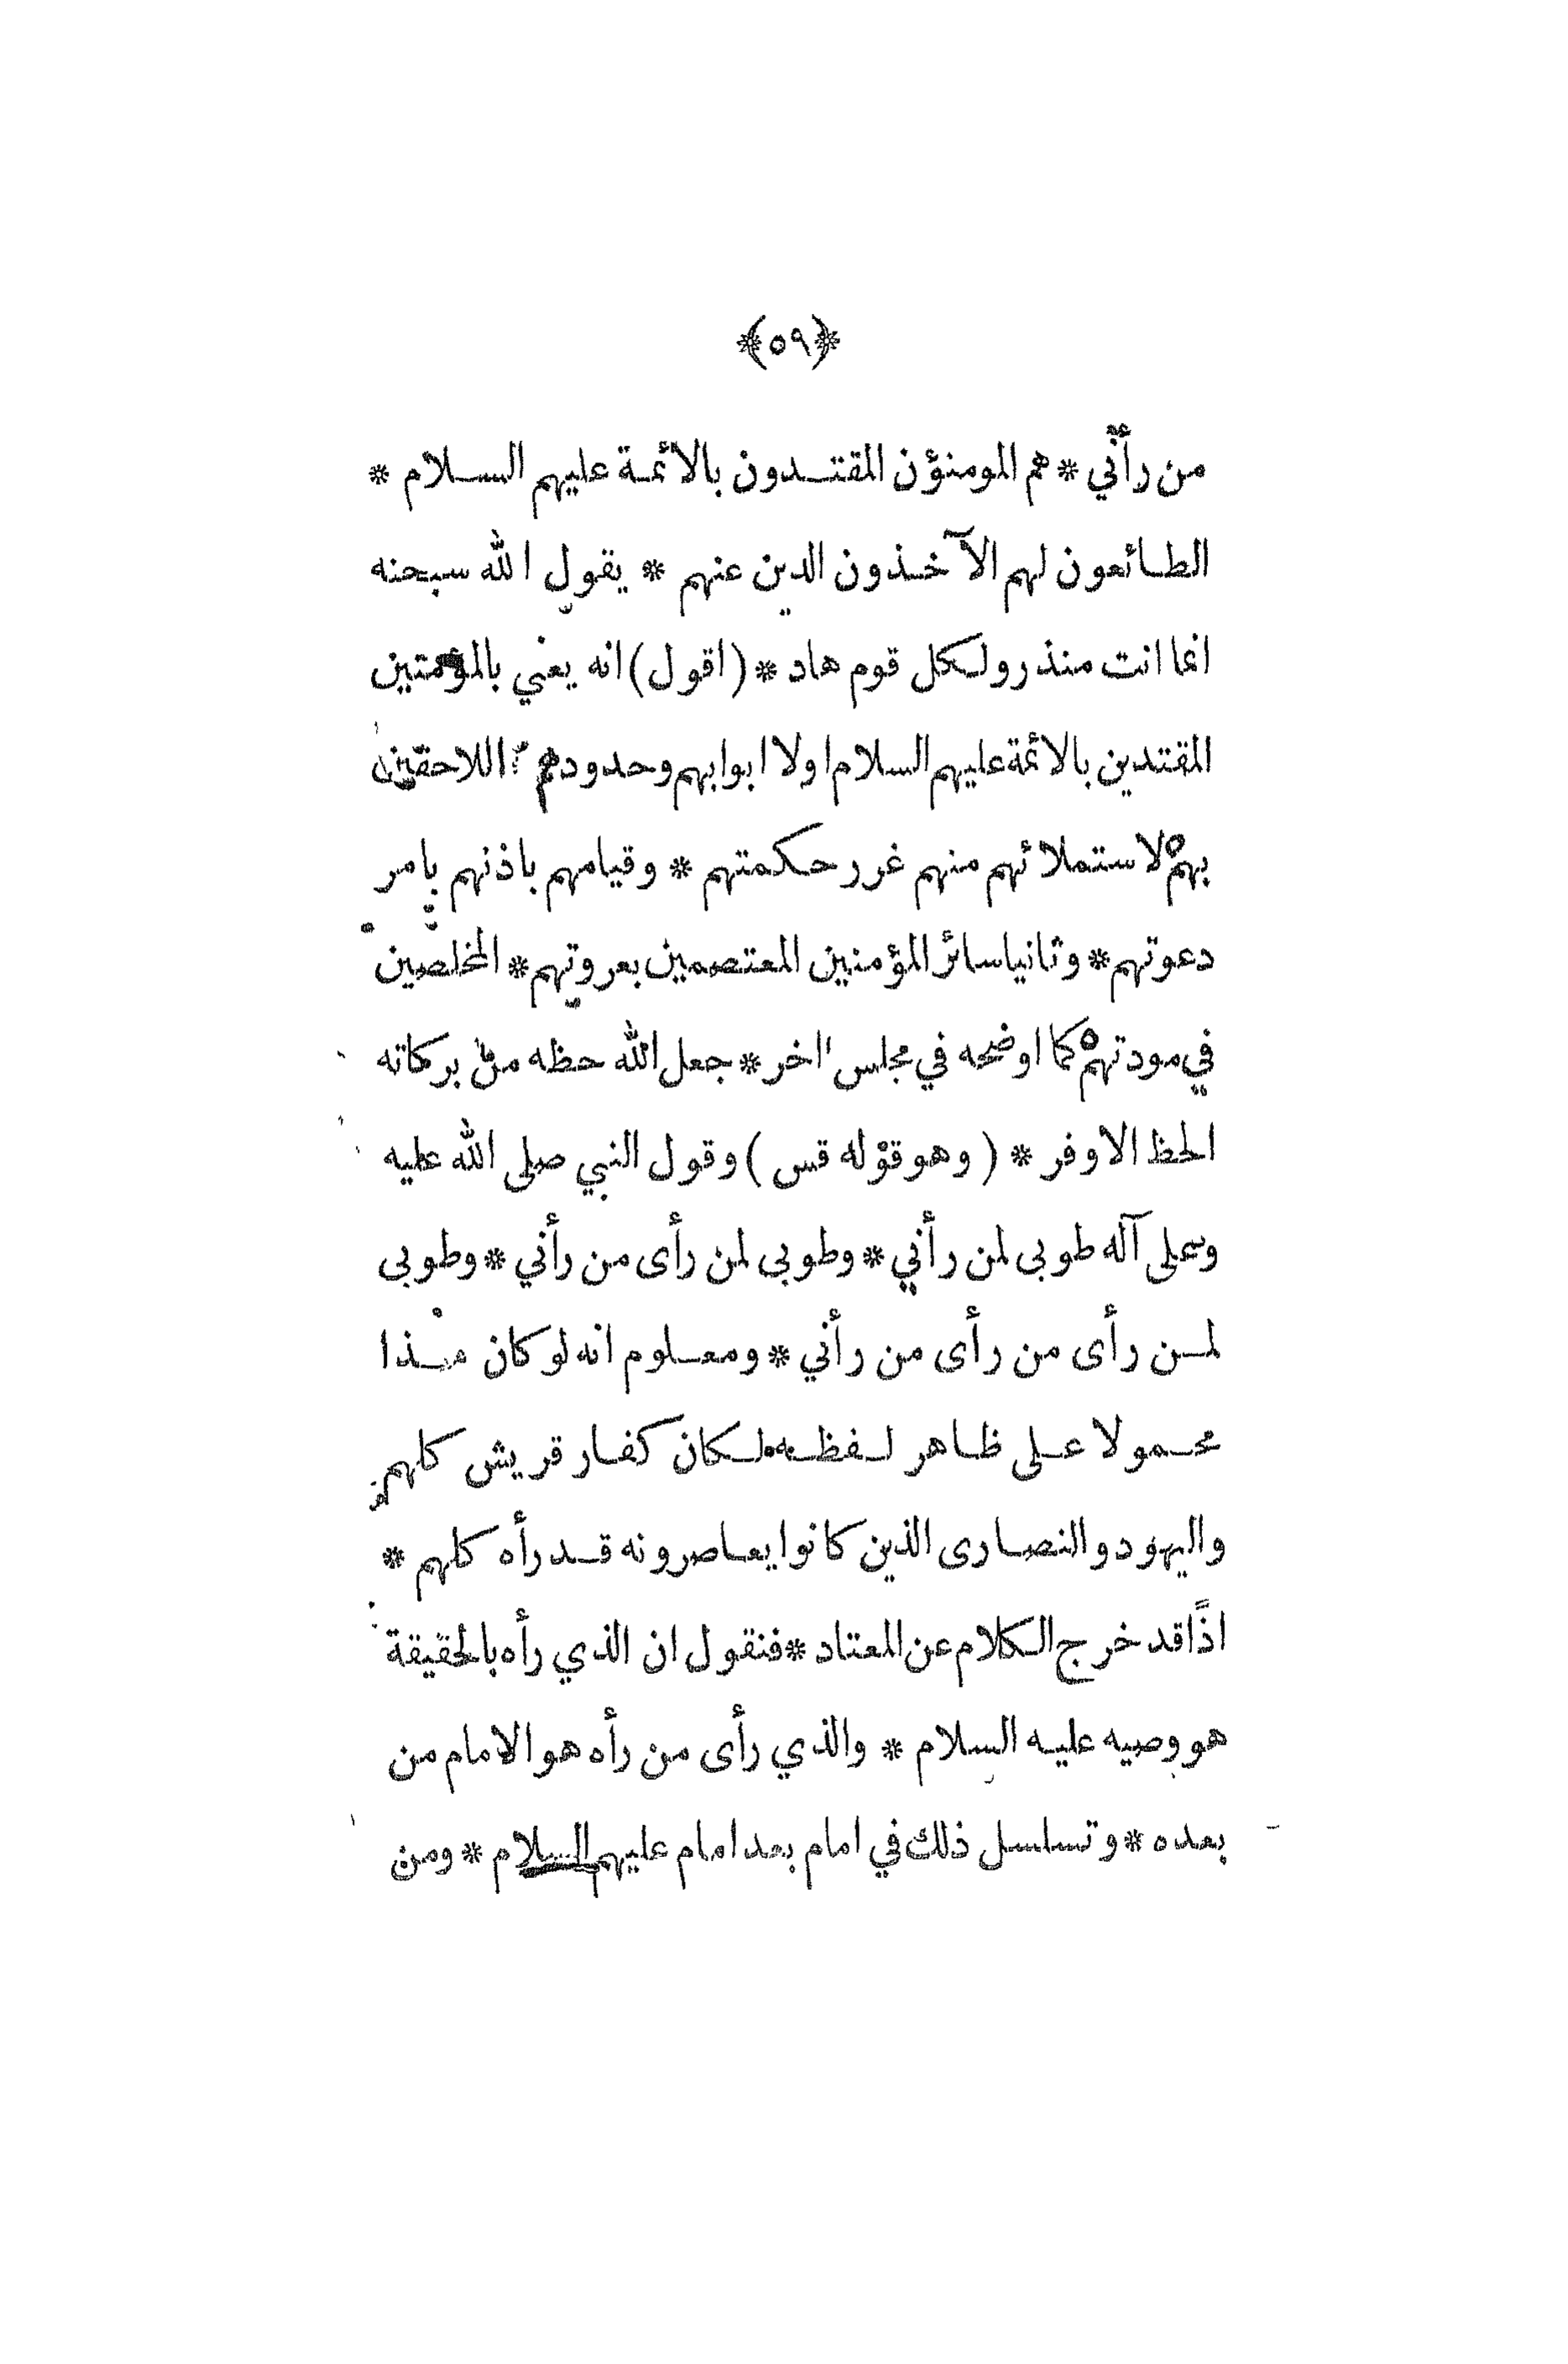 ﴿٥٩﴾
من رأني * هم المومنؤن المقتدون بالأئمة عليهم السلام *
الطائعون لهم الآخذون الدين عنهم * يقول الله سبحنه
انما انت منذر ولكل قوم هاد * (اقول) انه يعني بالمؤمنين
المقتدين بالائمة عليهم السلام اولا ابوابهم وحدودهم اللاحقين
بهم لاستملائهم منهم غرر حكمتهم * وقيامهم باذنهم بامر
دعوتهم * وثانيا سائر المؤمنين المعتصمين بعروتهم * المخلصين
في مودتهم كما اوضحه في مجلس اخر * جعل الله حظه من بركاته
الحظ الاوفر * (وهو قوله قس) وقول النبي صلى الله عليه
وعلى آله طوبى لمن رأني * وطوبى لمن رأى من رأني * وطوبى
لمن رأى من رأى من رأني * ومعلوم انه لو كان هذا
محمولا على ظاهر لفظه لكان كفار قريش كلهم
واليهود والنصارى الذين كانوا يعاصرونه قد رأه كلهم *
اذًا قد خرج الكلام عن المعتاد * فنقول ان الذي رأه بالحقيقة
هو وصيه عليه السلام * والذي رأى من رأه هو الامام من
بعده * وتسلسل ذلك في امام بعد امام عليهم السلام * ومن